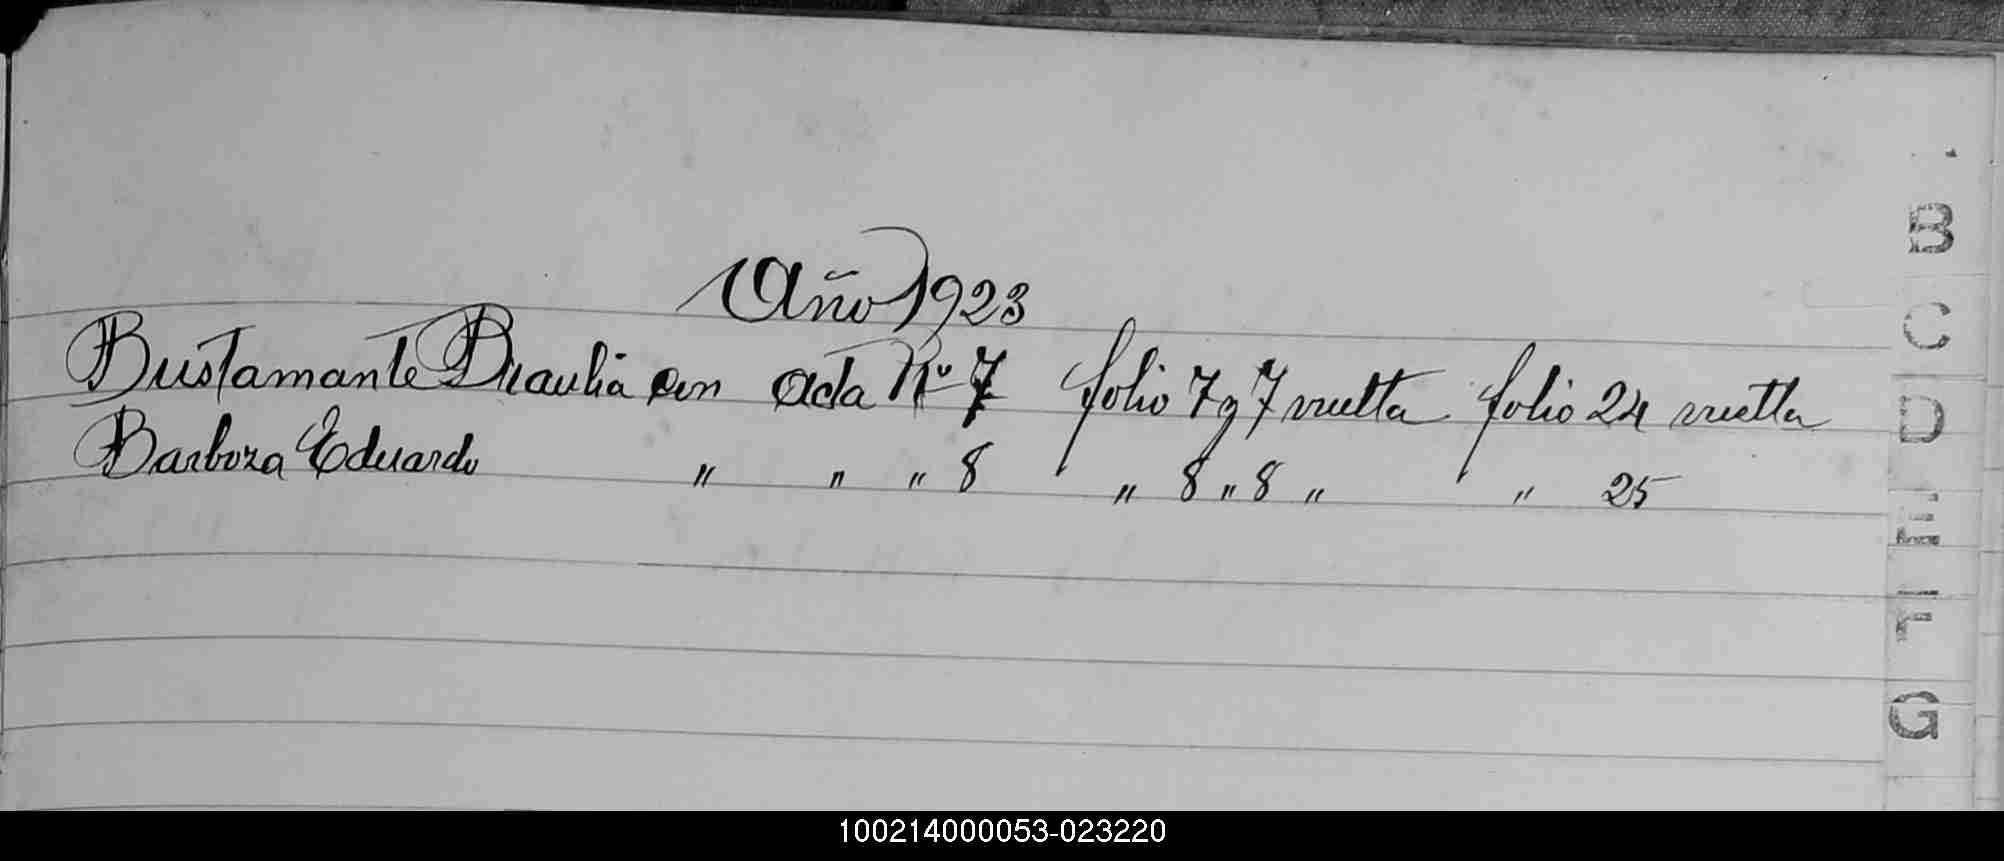 Año 1923
Bustamante Braulia con acta No 7 folio 7 y 7 vuelta folio 24 vuelta
Barboza Eduardo " " " 8 " 8 " 8 " " 25
B
C
D
E
F
G
100214000053-023220